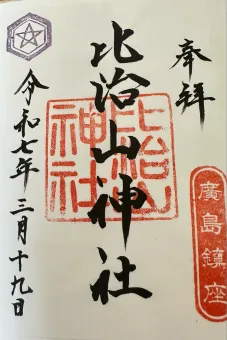 奉拝
廣島鎮座
比治山神社
比治山神社
令和七年三月十九日